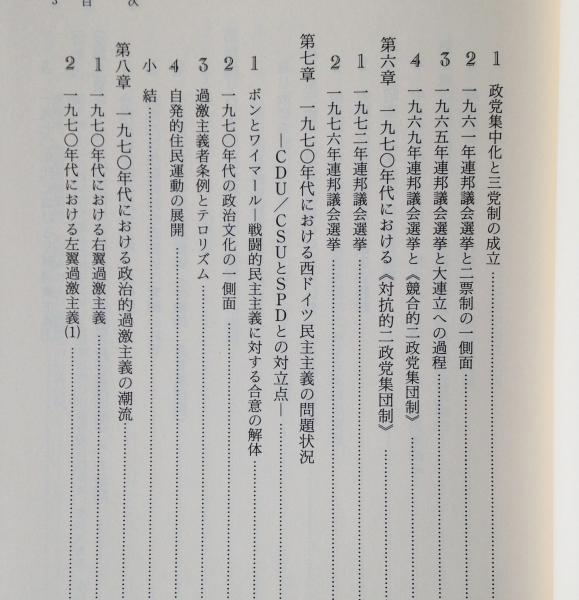 3 目 次
1 政党集中化と三党制の成立
2 一九六一年連邦議会選挙と二票制の一側面
3 一九六五年連邦議会選挙と大連立への過程
4 一九六九年連邦議会選挙と《競合的二政党集団制》
第六章 一九七〇年代における《対抗的二政党集団制》
1 一九七二年連邦議会選挙
2 一九七六年連邦議会選挙
第七章 一九七〇年代における西ドイツ民主主義の問題状況
―CDU/CSUとSPDとの対立点―
1 ボンとワイマール―戦闘的民主主義に対する合意の解体
2 一九七〇年代の政治文化の一側面
3 過激主義者条例とテロリズム
4 自発的住民運動の展開
小 結
第八章 一九七〇年代における政治的過激主義の潮流
1 一九七〇年代における右翼過激主義
2 一九七〇年代における左翼過激主義(1)